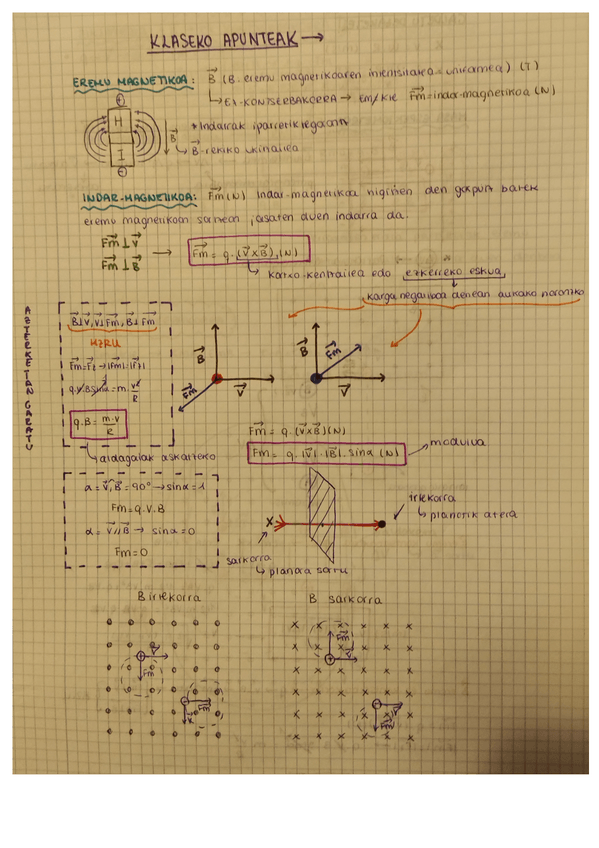 KLASEKO APUNTEAK →
EREMU MAGNETIKOA: B⃗ (B. eremu magnetikoaren intentsitatea = unitatea) (T)
↳ EZ-KONTSERBAKORRA → Fm⃗ = indar-magnetikoa (N)
H
I
B⃗
* Indarrak iparretik
↳ B⃗-rekiko ukitzailea
INDAR-MAGNETIKOA: Fm⃗ (N) Indar-magnetikoa higitzen den gorputz batek
eremu magnetikoan sartzean, jasaten duen indarra da.
Fm⃗ ⊥ v⃗
Fm⃗ ⊥ B⃗
→ Fm⃗ = q · (v⃗ x B⃗), (N)
↳ kortxo-kentzailea edo ezkerreko eskua
karga negatiboa denean aurkako norantzko
AZTERKETAN GARATU
B⊥v, v⊥Fm, B⊥Fm
HZKU
Fm⃗ = Fz → |Fm| = |Fz|
q·v·B sinα = m · v²/R
q·B = m·v/R
↳ aldagaiak askatzeko
B⃗
Fm⃗
V⃗
B⃗
Fm⃗
V⃗
Fm⃗ = q · (v⃗ x B⃗) (N)
Fm = q · |v⃗| · |B⃗| · sinα (N)
modulua
α = v⃗, B⃗ = 90° → sinα = 1
Fm = q · v · B
α = v⃗ // B⃗ → sinα = 0
Fm = 0
x
irtekorra
↳ planotik atera
sarkorra
↳ planoa sartu
B irtekorra
B sarkorra
Fm
Fm
Fm
V
Fm
V